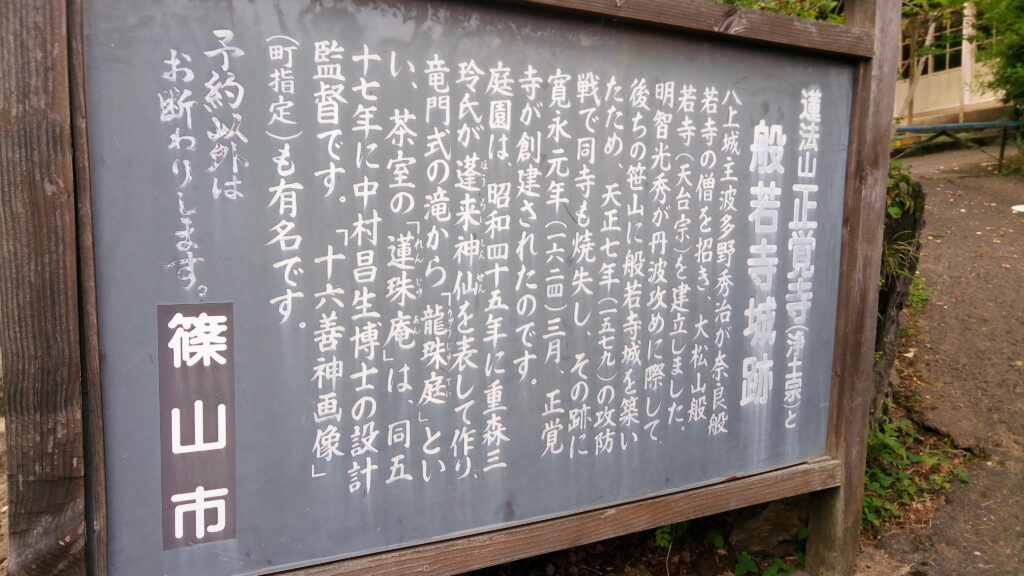 蓮法山正覚寺(浄土宗)と
般若寺城跡
八上城主波多野秀治が奈良般
若寺の僧を招き、大松山般
若寺(天台宗)を建立しました。
明智光秀が丹波攻めに際して、
後ちの笹山に般若寺城を築い
たため 天正七年(一五七九)の攻防
戦で同寺も焼失し、その跡に
寛永元年(一六二四)三月、正覚
寺が創建されたのです。
庭園は 昭和四十五年に重森三
玲氏が蓬来神仙を表して作り、
竜門式の滝から「龍珠庭」とい
い、茶室の「蓮珠庵」は、同五
十七年に中村昌生博士の設計
監督です。「十六善神画像」
(町指定)も有名です。
予約以外は
お断わりします。
篠山市